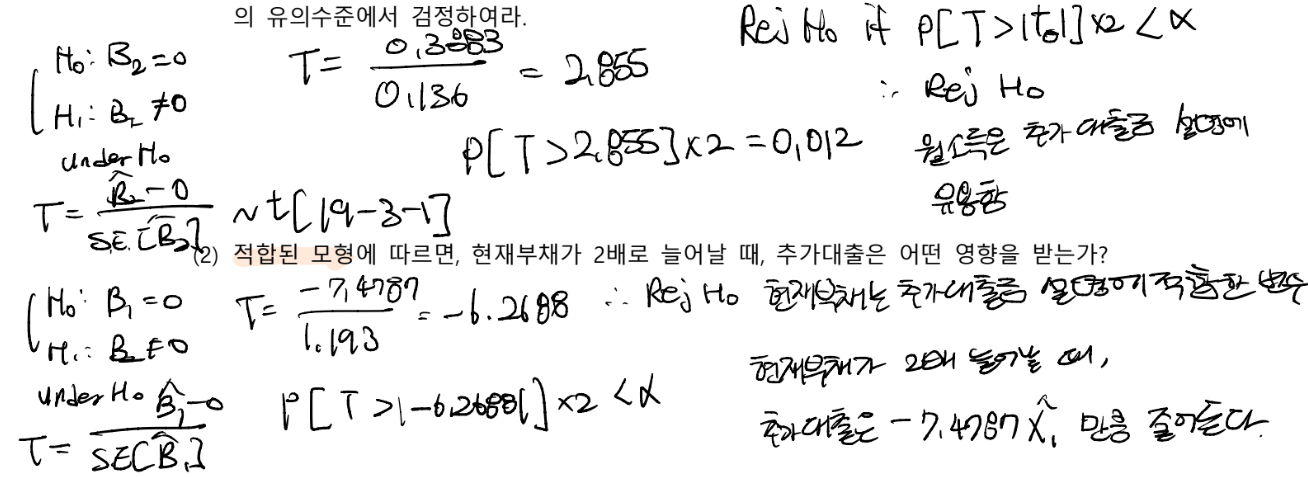 의 유의수준에서 검정하여라.
H₀: B₂=0
H₁: B₂≠0
under H₀
T = (B̂₂-0)/(S.E.[B̂₂]) ~ t[19-3-1]
T = 0.3883/0.136 = 2.855
P[T>2.855]×2=0.012
Rej H₀ if P[T>|t₀|]×2<α
∴ Rej H₀
월소득은 추가대출금 설명에
유용함
(2) 적합된 모형에 따르면, 현재부채가 2배로 늘어날 때, 추가대출은 어떤 영향을 받는가?
H₀: B₁=0
H₁: B₁≠0
under H₀
T = (B̂₁-0)/(SE[B̂₁])
T = -7.4787/1.193 = -6.2688
P[T>|-6.2688|]×2<α
∴ Rej H₀ 현재부채는 추가대출금 설명에 적합한 변수
현재부채가 2배 늘어날 때,
추가대출은 -7.4787 X̂₁ 만큼 줄어든다.